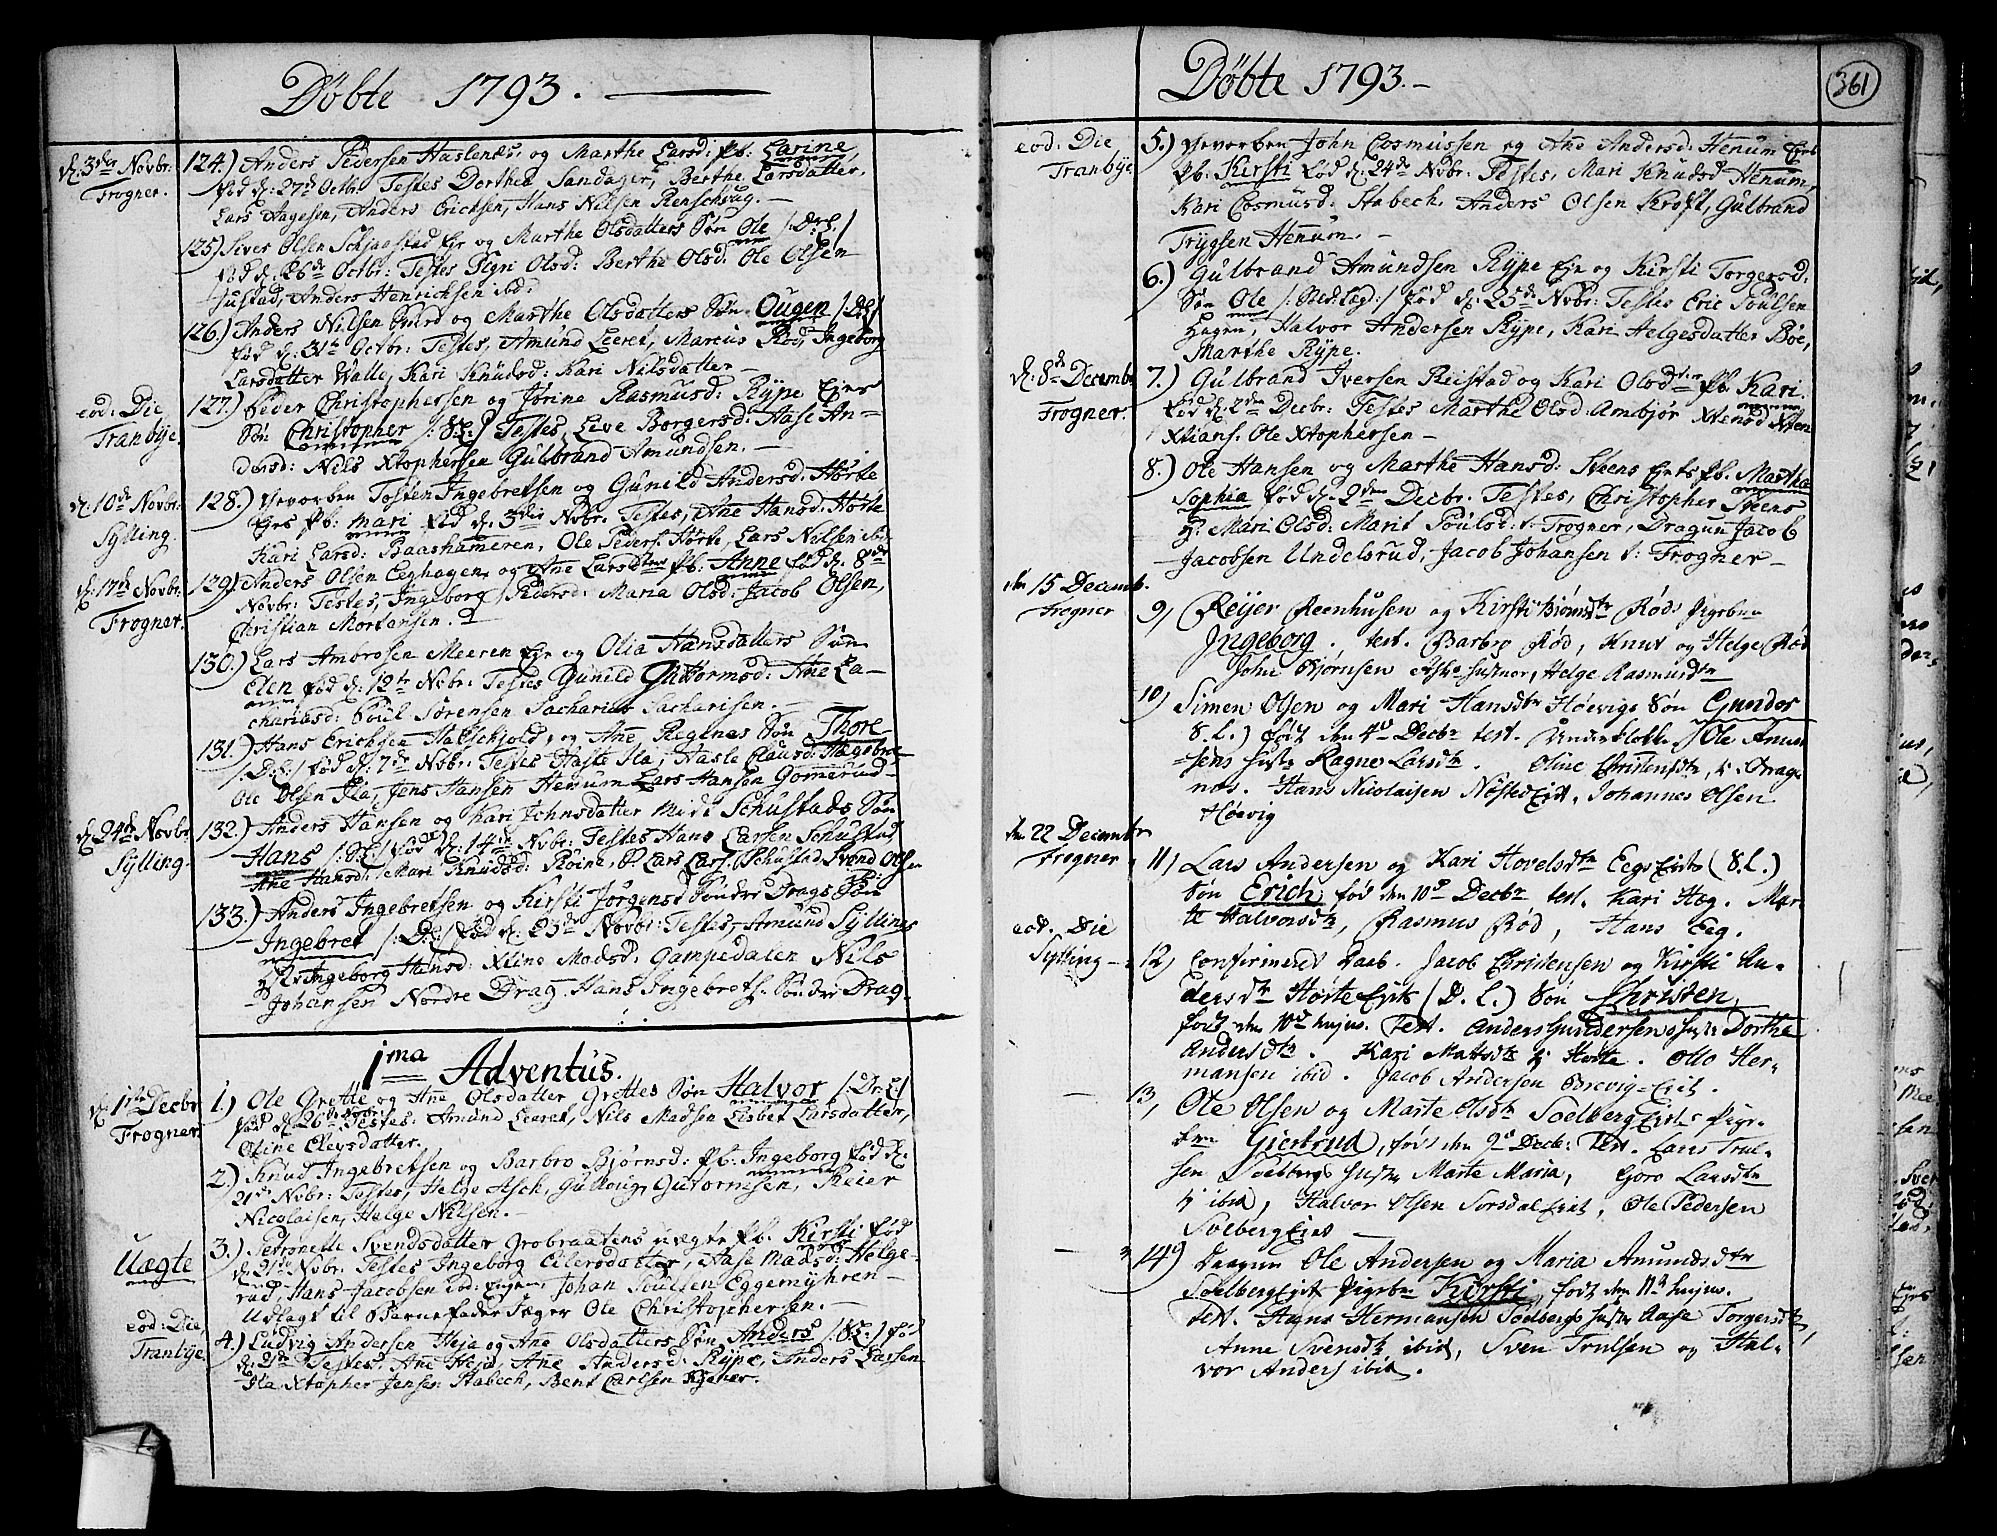 Døbte 1793.
d: 3die Novbr: Frogner.
124.) Anders Pedersen Haslenes og Marthe Larsd: Pb: Larine
fød d: 27d Octbr: Testes Dorthea Sandager, Berthe Larsdatter,
Lars Aagesen, Anders Erichsen, Hans Nilsen Renschoug.
125) Siver Olsen Schjaastad Eje og Marthe Olsdatters Søn Ole /:D:L:/
fød d: 26de Octbr: Testes Sigri Olsd: Berthe Olsd: Ole Olsen
Justad, Anders Henrichsen ibd:
126.) Anders Nilsen Gurd og Marthe Olsdatters Søn Ougen /:D:L:/
fød d: 31te Octbr: Testes, Amund Leeret, Marcus Rød, Ingeborg
Larsdatter Walle, Kari Knudsd: Kari Nilsdatter
eod: Die, Tranbye.
127.) Peder Christophersen og Jørine Rasmusd: Rype Ejes
Søn Christopher /:8L:/ Testes Live Borgersd: Aase An=
dersd: Nils Xtophersen Gulbrand Amundsen.
d: 10de Novbr: Sylling.
128.) Gevorben Tosten Ingebretsen og Gunild Andersd: Hørte
Ejes Pb: Mari fød d: 3die Novbr. Testes, Ane Hansd: Hørte
Kari Larsd: Baashammeren, Ole Peders: Hørte, Lars Nilsen ibid
d: 17de Novbr: Frogner.
129.) Anders Olsen Eeghagen og Ane Larsdtrs Pb: Anne fød d: 8de
Novbr: Testes, Ingeborg Pedersd: Maria Olsd: Jacob Olsen,
Christian Mortensen.
130.) Lars Ambrosen Meeren Eje og Olia Hansdatters Søn
Elen fød d: 12te Novbr: Testes Gunild Guttormsd: Ane Za-
chariasd: Poul Sørensen Zacharias Zacharisen.
131.) Hans Erichsen Hatschjold, og Ane Reginas Søn Thore
/:D:L:/ fød d: 7de Novbr: Testes Haste Ila, Aasle Clausd:
Ole Olsen Ila, Jens Hansen Henum Lars Hansen Gomerud
d: 24de Novbr Sylling.
132.) Anders Hansen og Kari Johnsdatter Midt Schustads Søn
Hans /:8L:/ fød d: 14de Novbr: Testes Hans Larsen Schustad,
Ane Hansd: Mari Knudsd: Roine, Lars Lars: Schustad Svend Olsen
133.) Anders Ingebretsen og Kirsti Jørgensd Søndre Drags Søn
Ingebret /:D:L:/ fød d: 23de Novbr: Testes, Amund Syllings
H: Ingeborg Hansd: Xtine Madsd: Gampedalen Nils
Johansen Nordre Drag. Hans Ingebrets: Søndre Drag.
1ma Adventus.
d: 1te Decbr Frogner.
1.) Ole Grette og Ane Olsdatter Grettes Søn Halvor /:D:L:/
fød d: 26de Novbr: Testes: Amund Leeret, Nils Madsen Lisbet Larsdatter,
Oline Elevsdatter.
2.) Knud Ingebretsen og Barbro Bjørnsd: Pb: Ingeborg fød d:
21de Novbr: Testes, Helge Asch, Gulloug Gutormsen, Reier
Nicolaisen, Helge Nilsen.
Uægte
3.) Petronelle Svendsdatter Grobraatens uægte Pb. Kirsti fød
d: 21te Novbr: Testes Ingeborg Eilersdatter, Aase Madsd: Helge-
rud, Hans Jacobsen ibd: Johan Poulsen Eggemyhren
Udlagt til Barnefader Jæger Ole Christophersen.
eod: Die, Tranbye.
4.) Ludvig Andersen Heja og Ane Olsdatters Søn Anders /:8L:/ fød
Testes, Ane Heja, Ane Andersd: Rype, Anders Larsen
Ila Xtopher Jensen Stabech, Bent Carlsen Kjener.
Døbte 1793.
361
eod: Die, Tranbye
5.) Gevorben John Cosmussen og Ane Andersd: Henum Ejes
Pb: Kirsti fød d: 24de Novbr: Testes, Mari Knudsd Henum,
Kari Cosmusd: Stabech. Anders Olsen Kroft, Gulbrand
Trygsen Henum.
6.) Gulbrand Amundsen Rype Eje og Kirsti Torgersd:
Søn Ole /:Sædlæg:/ fød d: 25de Novbr: Testes Eric Poulsen
Hagen, Halvor Andersen Rype, Kari Helgesdatter Bøe,
Marthe Rype.
d: 8de Decembr Frogner.
7.) Gulbrand Iversen Reistad og Kari Olsdtrs Pb. Kari.
fød d: 2den Decbr: Testes Marthe Olsd: Ambjør Xtensd Xten
Xtians. Ole Xtophersen
8.) Ole Hansen og Marthe Hansd: Sveens Ejes Pb. Martha
Sophia fød d: 2den Decbr: Testes, Christopher Sveens
H: Mari Olsd: Marit Poulsd: v: Frogner, Dragun Jacob
Jacobsen Undelsrud, Jacob Johansen v: Frogner
den 15 Decemb. Frogner
9, Reijer Reenhusen og Kirsti Bjørnsdtr Røds Pigebn
Ingeborg, test. Barbro Rød, Knut og Helge Rød
John Bjørnsen Hustroe, Helge Rasmusdtr
10, Simen Olsen og Mari Hansdtr Høevigs Søn Gunder
8.L.) født den 4de Decbr test. Underklokk. Ole Amun
sens Hustr Ragne Larsdtr. Oline Christensdtr, v: Drag-
nes. Hans Nicolaisen Nøste Eiet, Johannes Olsen
Høevig
den 22 Decembr Frogner
11, Lars Andersen og Kari Hovelsdtr Eegs Eiets (8.L.)
Søn Erich, fød den 10de Decbr test. Kari Høg. Mar-
te Halvorsdtr, Rasmus Rød, Hans Eeg.
eod. Die Sylling
12, Confirmeret Daab. Jacob Christensen og Kirsti An-
dersdtr Hørte Eiet (D.L.) Søn Christen,
født den 10de hujus. Test. Anders Gundersens Hustr Dorthe
Andersdtr. Kari Mattsdtr v: Horte. Otto Her-
mansen ibid. Jacob Andersen Brevig-Eiet.
13, Ole Olsen og Marte Olsdtr Solberg Eiets Pige-
bn Giertrud, født den 9de Decbr. Test. Lars Trul-
sen Solbergs Hustr Marte Maria, Goro Larsdtr
v: ibid, Halvor Olsen Sorsdal Eiet, Ole Pedersen
Solberg Eiet
14) Dragun Ole Andersen og Maria Amundsdtr
Solberg Eiet Pigebn Kirsti, født den 11te hujus.
test. Hans Hermansen Solbergs Hustr Aase Torgersdtr,
Anne Svensdtr ibid, Sven Trulsen og Hal-
vor Anders ibid.